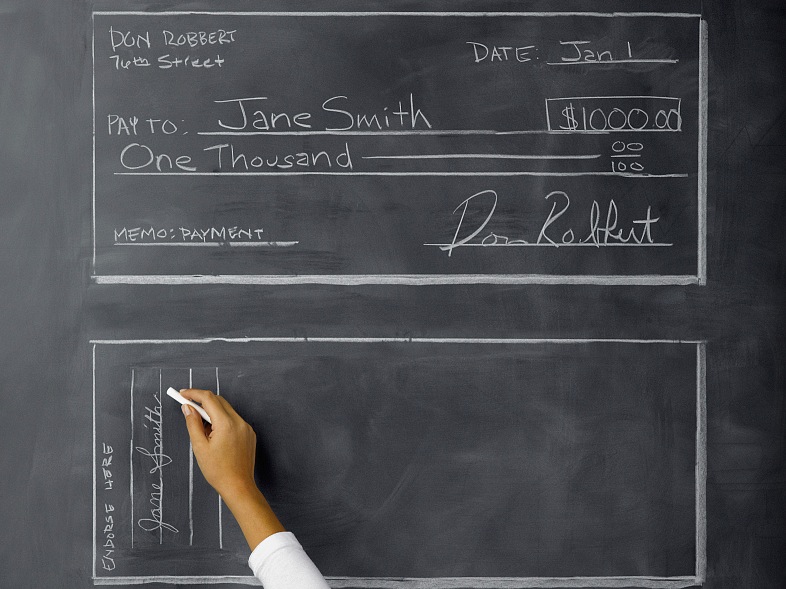 DON ROBBERT
76th Street
DATE: Jan 1
PAY TO: Jane Smith $1000.00
One Thousand 00/100
MEMO: PAYMENT
Don Robbert
ENDORSE HERE
Jane Smith